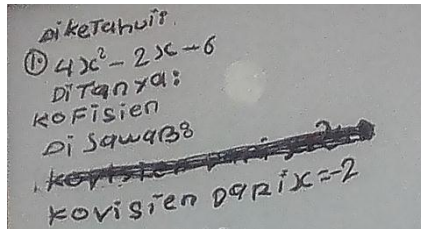 DiKeTahui:
① 4x² - 2x - 6
DiTanya:
KOFISIEN
Di Jawab:
KOVISIEN DARI x = -2